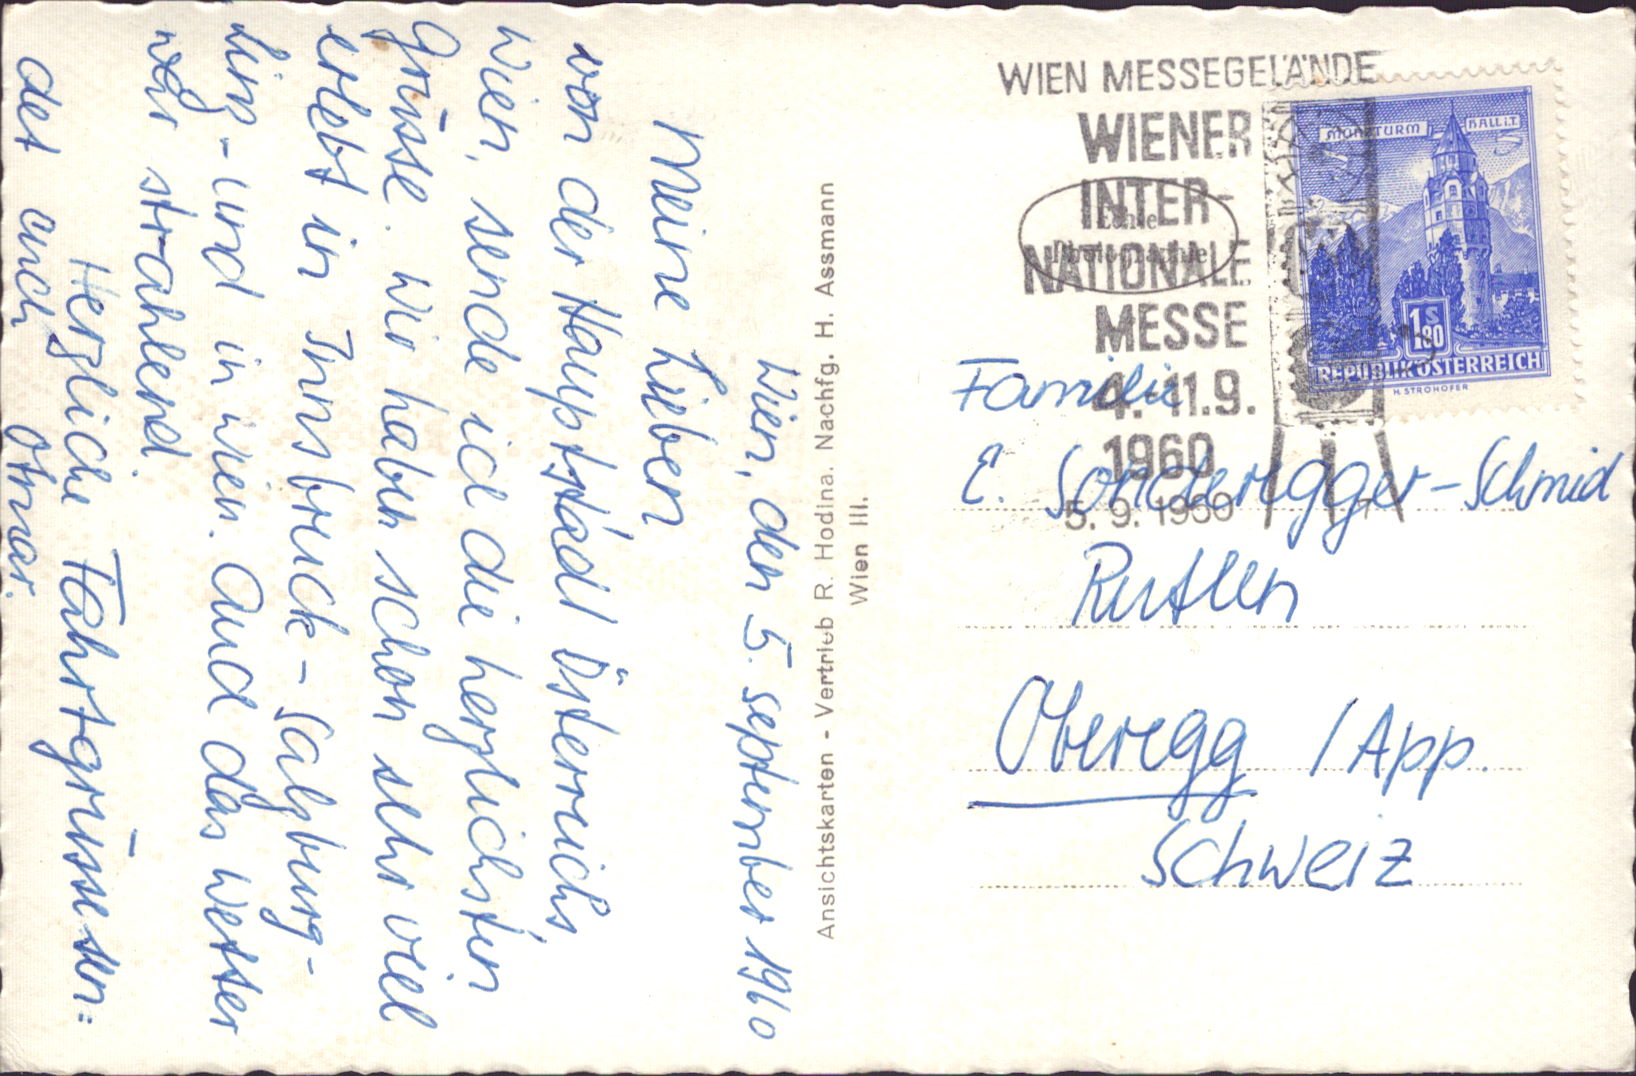 Wien, den 5. September 1960
Meine Lieben
von der Hauptstadt Österreichs,
Wien, sende ich die herzlichsten
Grüsse. Wir haben schon sehr viel
erlebt in Innsbruck-Salzburg-
Linz-und in Wien. Auch das Wetter
war strahlend.
Herzliche Fahrtgrüsse sen=
det euch Otmar.
Ansichtskarten - Vertrieb R. Hodina. Nachfg. H. Assmann
Wien III.
WIEN MESSEGELÄNDE
WIENER
INTER-
NATIONALE
MESSE
4.-11.9.
1960
5. 9. 1960
Echte
Photographie
MÜNZTURM HALL i.T.
1 S 80
REPUBLIK ÖSTERREICH
H. STROHOFER
Familie
E. Sonderegger-Schmid
Oberegg / App.
Schweiz